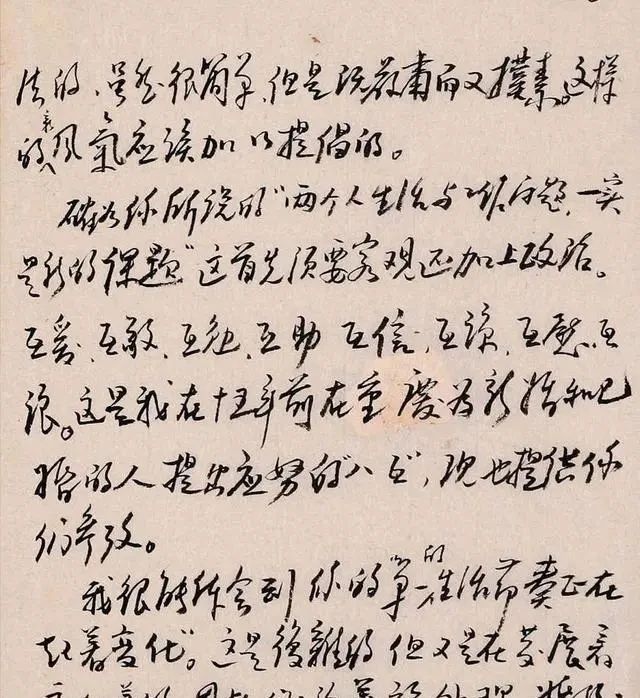 法的，虽然很简单，但是既严肃而又朴素。这样
的风气应该加以提倡的。
确如你所说的“两个人生活与工作问题，一实
是新的课题”这首先须要客观还加上政治。
互爱、互敬、互勉、互助、互信、互谅、互慰、互
让。这是我在十五年前在重庆为新婚和已
婚的人提出应努的“八互”，现也提供你
们参考。
我很能体会到你的“单一的生活节奏正在
起着变化”。这是复杂的但又是在发展着